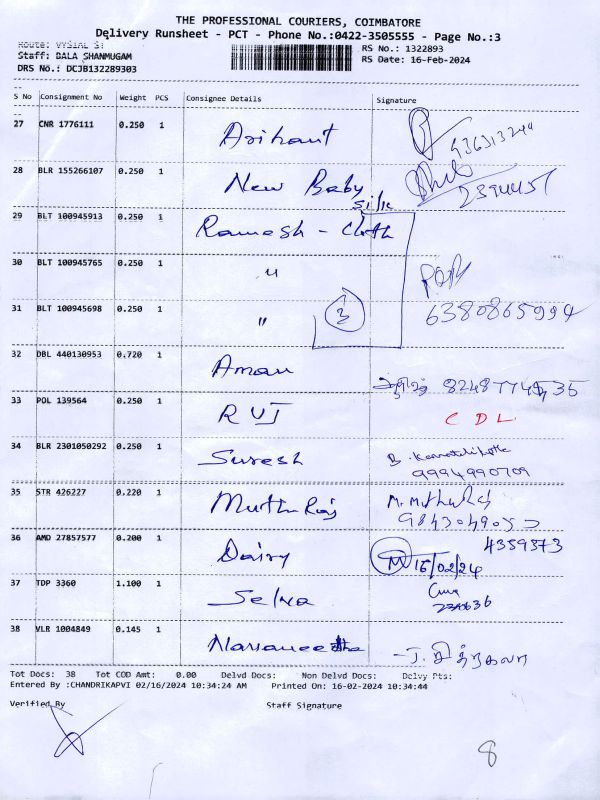 THE PROFESSIONAL COURIERS, COIMBATORE
Delivery Runsheet - PCT - Phone No.:0422-3505555 - Page No.:3
Route: VYSIAL ST
Staff: BALA SHANMUGAM
DRS No.: DCJB132289303
RS No.: 1322893
RS Date: 16-Feb-2024
S No Consignment No Weight PCS Consignee Details Signature
27 CNR 1776111 0.250 1 Arihant
28 BLR 155266107 0.250 1 New Baby 2394451
silk
29 BLT 100945913 0.250 1 Ramesh - Cloth
30 BLT 100945765 0.250 1 "
31 BLT 100945698 0.250 1 " 3 6380865994
32 DBL 440130953 0.720 1 Aman
33 POL 139564 0.250 1 RUJ CDL
34 BLR 2301050292 0.250 1 Suresh 9994990709
35 STR 426227 0.220 1 Muthu Raj
36 AMD 27857577 0.200 1 Dairy 4359873
16/02/24
37 TDP 3360 1.100 1 Selva
38 VLR 1004849 0.145 1
Tot Docs: 38 Tot COD Amt: 0.00 Delvd Docs: Non Delvd Docs: Delvy Pts:
Entered By :CHANDRIKAPVI 02/16/2024 10:34:24 AM Printed On: 16-02-2024 10:34:44
Verified By Staff Signature
8